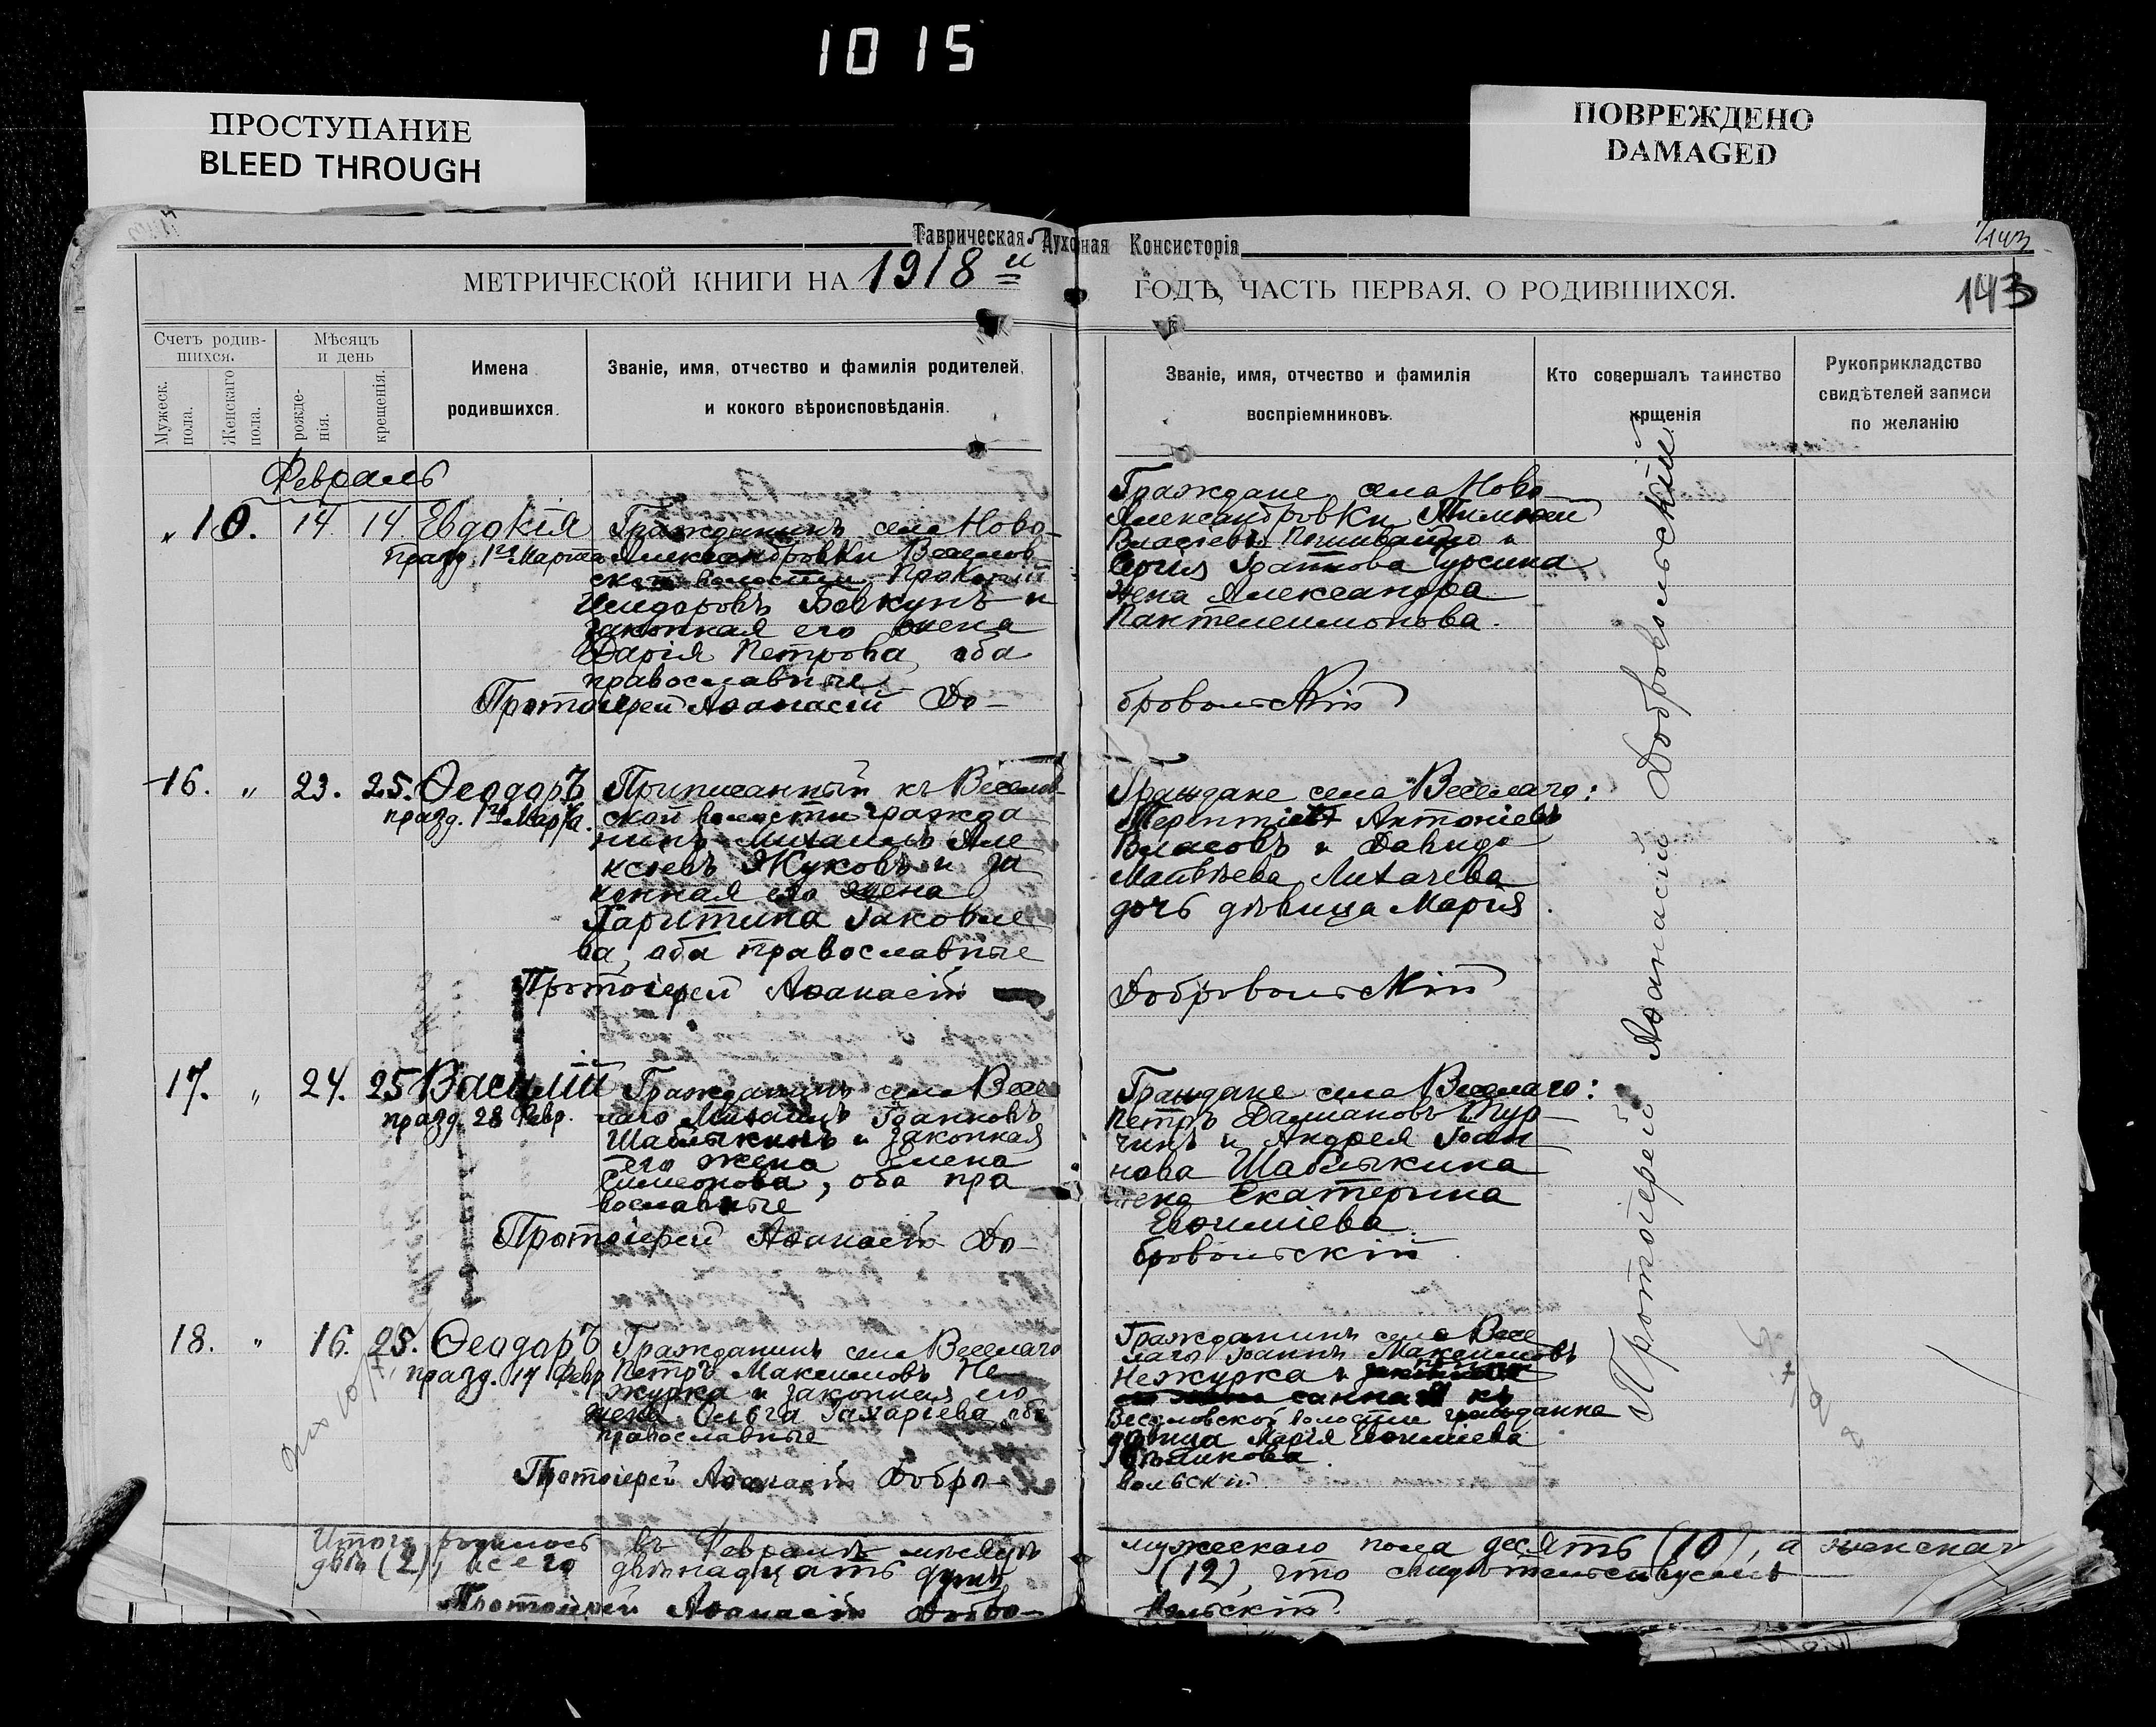 1015
ПРОСТУПАНИЕ
BLEED THROUGH
ПОВРЕЖДЕНО
DAMAGED
Таврическая Духовная Консисторія
143
МЕТРИЧЕСКОЙ КНИГИ НА 1918 й ГОДЪ, ЧАСТЬ ПЕРВАЯ, О РОДИВШИХСЯ.
143
Счетъ родив-
шихся.
Мужеск. пола.
Женскаго пола.
Мѣсяцъ
и день
рожде-
нія.
крещенія.
Имена
родившихся.
Званіе, имя, отчество и фамилія родителей,
и кокого вѣроисповѣданія.
Званіе, имя, отчество и фамилія
воспріемниковъ.
Кто совершалъ таинство
крщенія
Рукоприкладство
свидѣтелей записи
по желанію
Февраль
" 10. 14 14 Евдокія
празд. 1го Марта
Гражданинъ села Ново-
Александровки Веселов
ской волости Прокопій
Исидоровъ Бовкунъ и
законная его жена
Дарія Петрова оба
православные
Протоіерей Аѳанасій До-
Граждане села Ново
Александровки
Власіевъ и
Іоаннова
жена Александра
Пантелеимонова.
бровольскій
16. " 23. 25. Ѳеодоръ
празд. 1го Марта.
Приписанный къ Веселов
ской волости гражда
нинъ Михаилъ Але
ксѣевъ Жуковъ и за
конная его жена
Харитина Іаковле
ва, оба православные
Протоіерей Аѳанасій
Граждане села Веселаго:
Терентій Антоніевъ
Власовъ и Давида
Матвѣева Лихачева
дочь дѣвица Марія.
Добровольскій
17. " 24. 25 Василій
празд. 28 Февр.
Гражданинъ села Весе
лаго Михаилъ Іоанновъ
Шаблыкинъ и законная
его жена Елена
Симеонова, оба пра
вославные
Протоіерей Аѳанасій До-
Граждане села Веселаго:
Петръ Даміановъ Тур
чинъ и Андрея Іоан
нова Шаблыкина
жена Екатерина
Евѳиміева.
бровольскій
18. " 16. 25. Ѳеодоръ
празд. 17 Февр
Гражданинъ села Веселаго
Петръ Максимовъ Не
журка и законная его
жена Ольга Захаріева, оба
православные
Протоіерей Аѳанасій Добро-
Гражданинъ села Весе
лаго Іоаннъ Максимовъ
Нежурка и припи
санная къ
Веселовской волости гражданка
дѣвица Марія Евѳиміева
вольскій.
Протоіерей Аѳанасій Добровольскій
Итого родилось въ Февралѣ мѣсяцѣ мужескаго пола десять (10), а женскаго
двѣ (2), всего двѣнадцать душъ (12), что свидѣтельствуемъ
Протоіерей Аѳанасій Добро-
вольскій.